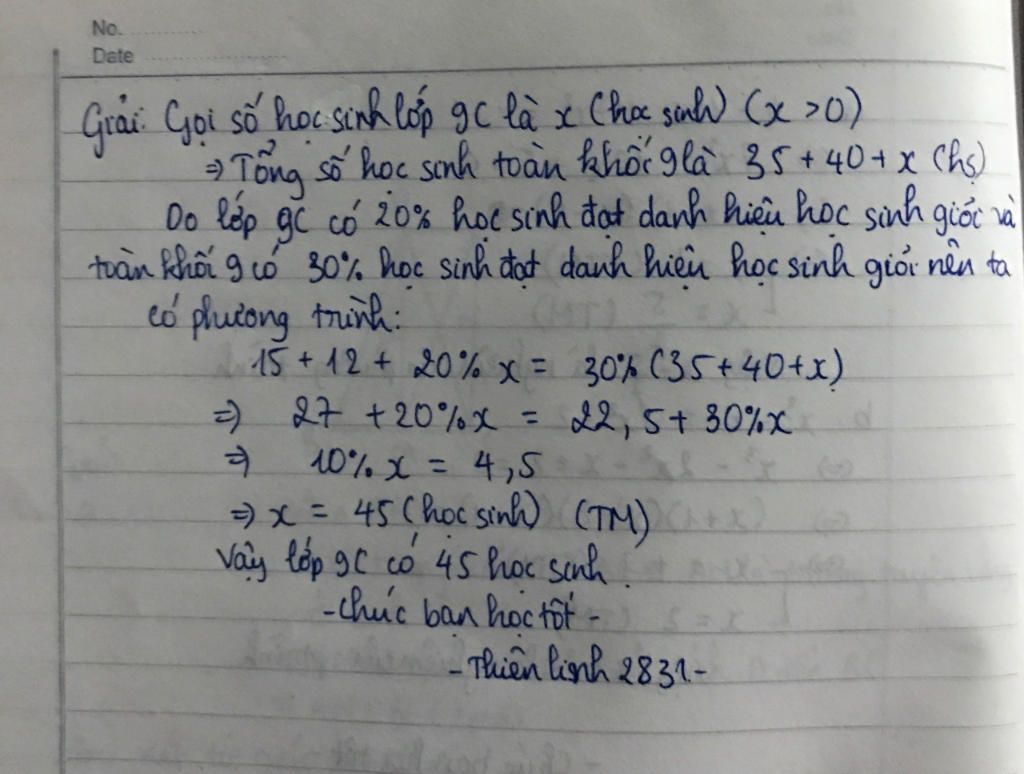 No.
Date
Giải: Gọi số học sinh lớp 9C là x (học sinh) (x >0)
⇒ Tổng số học sinh toàn khối 9 là 35 + 40 + x (hs)
Do lớp 9C có 20% học sinh đạt danh hiệu học sinh giỏi và
toàn khối 9 có 30% học sinh đạt danh hiệu học sinh giỏi nên ta
có phương trình:
15 + 12 + 20% x = 30% (35 + 40 + x)
⇒ 27 + 20% x = 22,5 + 30% x
⇒ 10% x = 4,5
⇒ x = 45 (học sinh) (TM)
Vậy lớp 9C có 45 học sinh.
- Chúc bạn học tốt -
- Thiên linh 2831 -